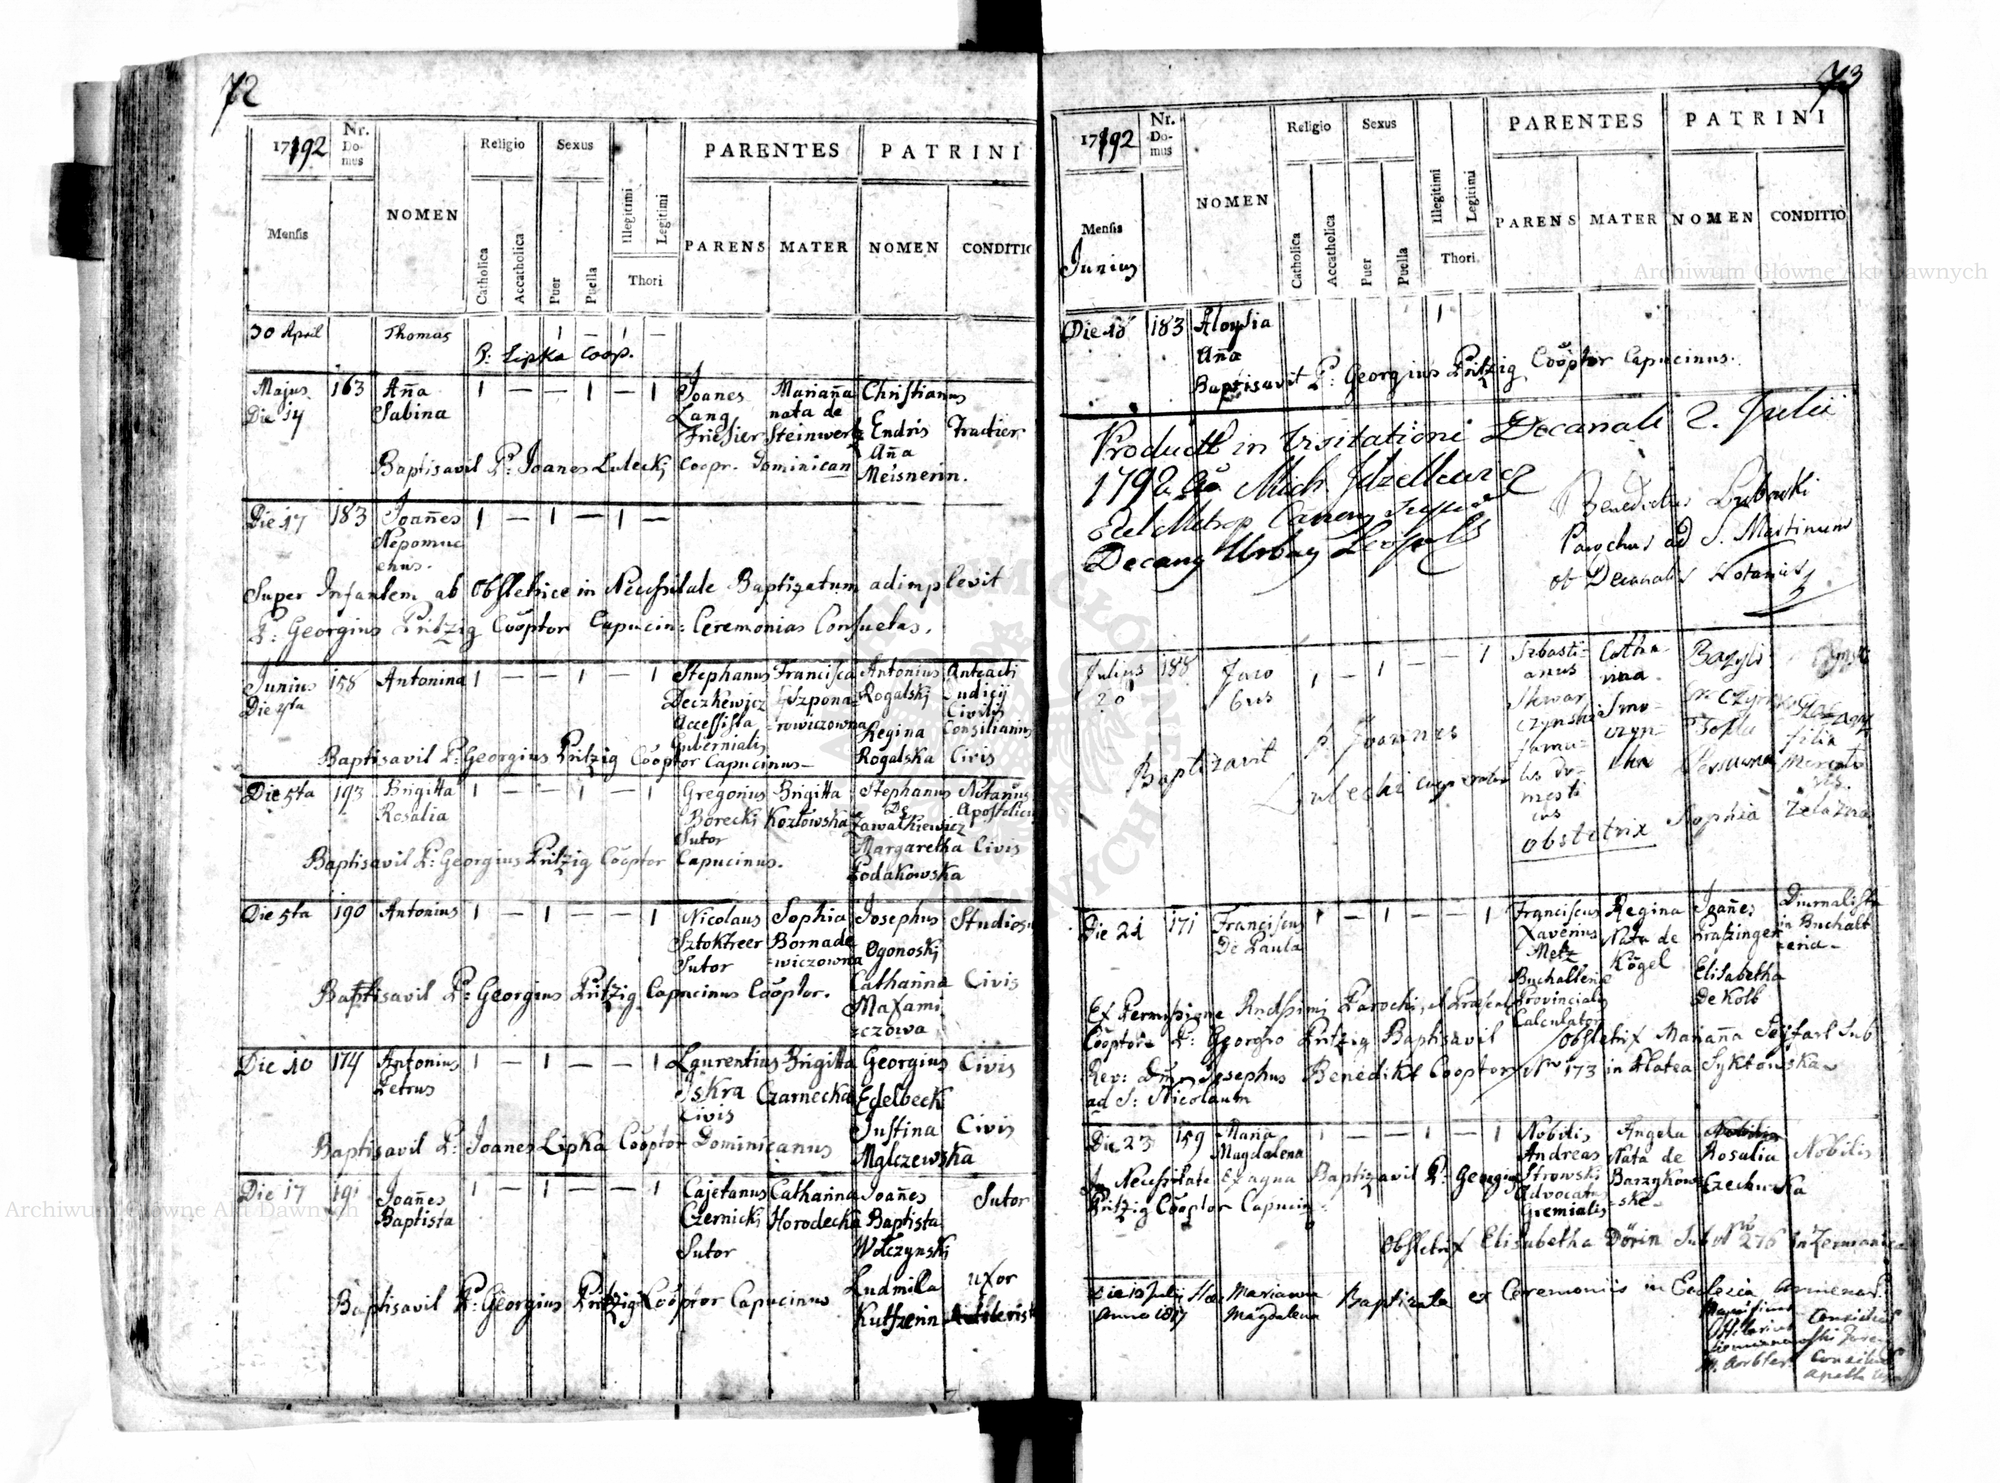 72
1792
Nr. Domus
NOMEN
Religio
Sexus
PARENTES
PATRINI
Mensis
Catholica
Accatholica
Puer
Puella
Illegitimi
Legitimi
Thori
PARENS
MATER
NOMEN
CONDITIO
30 April Thomas 1 — 1 —
P: Lipka Coop.
Majus 163 Aña 1 — — 1 — 1 Joanes Mariaña Christianus
Die 14 Sabina Lang nata de
Friesier Steinwertz Endris Tractier
Aña
Baptisavit P: Joanes Lutecki Coopr. Dominican
Meisnerin.
Die 17 183 Joañes 1 — 1 — 1 —
Nepomuc
enus.
Super Infantem ab Obstetrice in Necessitate Baptizatum adimplevit
P: Georgius Pritzig Cooptor Capucin: Ceremonias Consuetas.
Junius 158 Antonina 1 — — 1 — 1 Stephanus Francisca Antonius Antracti
Die 4ta Deczkewicz Szpona- Rogalski Judicij
Accessista rowiczowna Civilis
Gubernialis Regina Consilianus
Baptisavit P: Georgius Pritzig Cooptor Capucinus — Rogalska Civis
Die 5ta 193 Brigitta 1 — — 1 — 1 Gregorius Brigitta Stephanus Notarius
Rosalia Borecki Kozłowska De Apostolicus
Sutor Zawałkiewicz
Margaretha Civis
Baptisavit P: Georgius Pritzig Cooptor Capucinus.
Podakowska
Die 5ta 190 Antonius 1 — 1 — — 1 Nicolaus Sophia Josephus Studiosus
Sztoktreer Bornade Ogonoski
Sutor =wiczowna
Baptisavit P: Georgius Pritzig Capucinus Cooptor. Catharina Civis
Maxami
=czowa
Die 10 174 Antonius 1 — 1 — — 1 Laurentius Brigitta Georgius Civis
Petrus Iskra Czarnecka Edelbeck
Civis Justina Civis
Baptisavit P: Joanes Lipka Cooptor Dominicanus
Malczewska
Die 17 191 Joañes 1 — 1 — — 1 Cajetanus Catharina Joañes Sutor
Baptista Czernicki Horodecka Baptista
Sutor Wolczynski
Ludmila uxor
Baptisavit P: Georgius Pritzig Cooptor Capucinus
Kutzerin
73
1792
Nr. Domus
NOMEN
Religio
Sexus
PARENTES
PATRINI
Mensis
Junius
Catholica
Accatholica
Puer
Puella
Illegitimi
Legitimi
Thori.
PARENS
MATER
NOMEN
CONDITIO
Die 18 183 Aloysia 1
Aña
Baptisavit P: Georgius Pritzig Cooptor Capucinus.
Product in Visitationi Decanali 2. Julii
1792. Mich.
Decany Urbany
Benedictus
Parochus ad S. Martinum
et Decanalis Notarius
Julius 188 Jaco 1 — 1 — — 1 Sebasti- Catha- Bazyli
20 bus anus rina
Skwar Smo-
czynski czyn-
famu- ska
lus do-
mesti
cus
filia
Mercato
ris.
Baptizavit P Joannes
Lutecki cooperator
obstetrix Sophia Zelazna
Die 21 171 Franciscus 1 — 1 — — 1 Franciscus Regina Joañes Diurnalista
De Paula Xaverius Nata de Pratzinger in Buchalt
Metz Kögel =eria-
Buchalteriæ Elisabetha
Provincialis De Kolb
Calculator
Ex Permissione Rndssimi Parochi, et
Cooptore P: Georgio Pritzig Baptisavit Obstetrix Mariaña Seyfart Sub
Rev: Dnus Josephus Benedikt Cooptor Nro 173 in Platea Syktowska
ad S: Nicolaum
Die 23 159 Maria 1 — — 1 — 1 Nobilis Angela Rosalia Nobilis
Magdalena Andreas Nata de Czechurska
Strowski Barzykow
Advocatus =ske-
Gremialis
In Necessitate Ex aqua Baptizavit P: Georgius
Pritzig Cooptor Capucin
Obstetrix Elisabetha Dörin Sub Nro 276 in
Die 10 Julii Marianna Baptizata ex Ceremoniis in Eclezia Armenor.
Anno 1817 Magdalena
Archiwum Główne Akt Dawnych
Archiwum Główne Akt Dawnych
ARCHIWUM GŁÓWNE AKT DAWNYCH